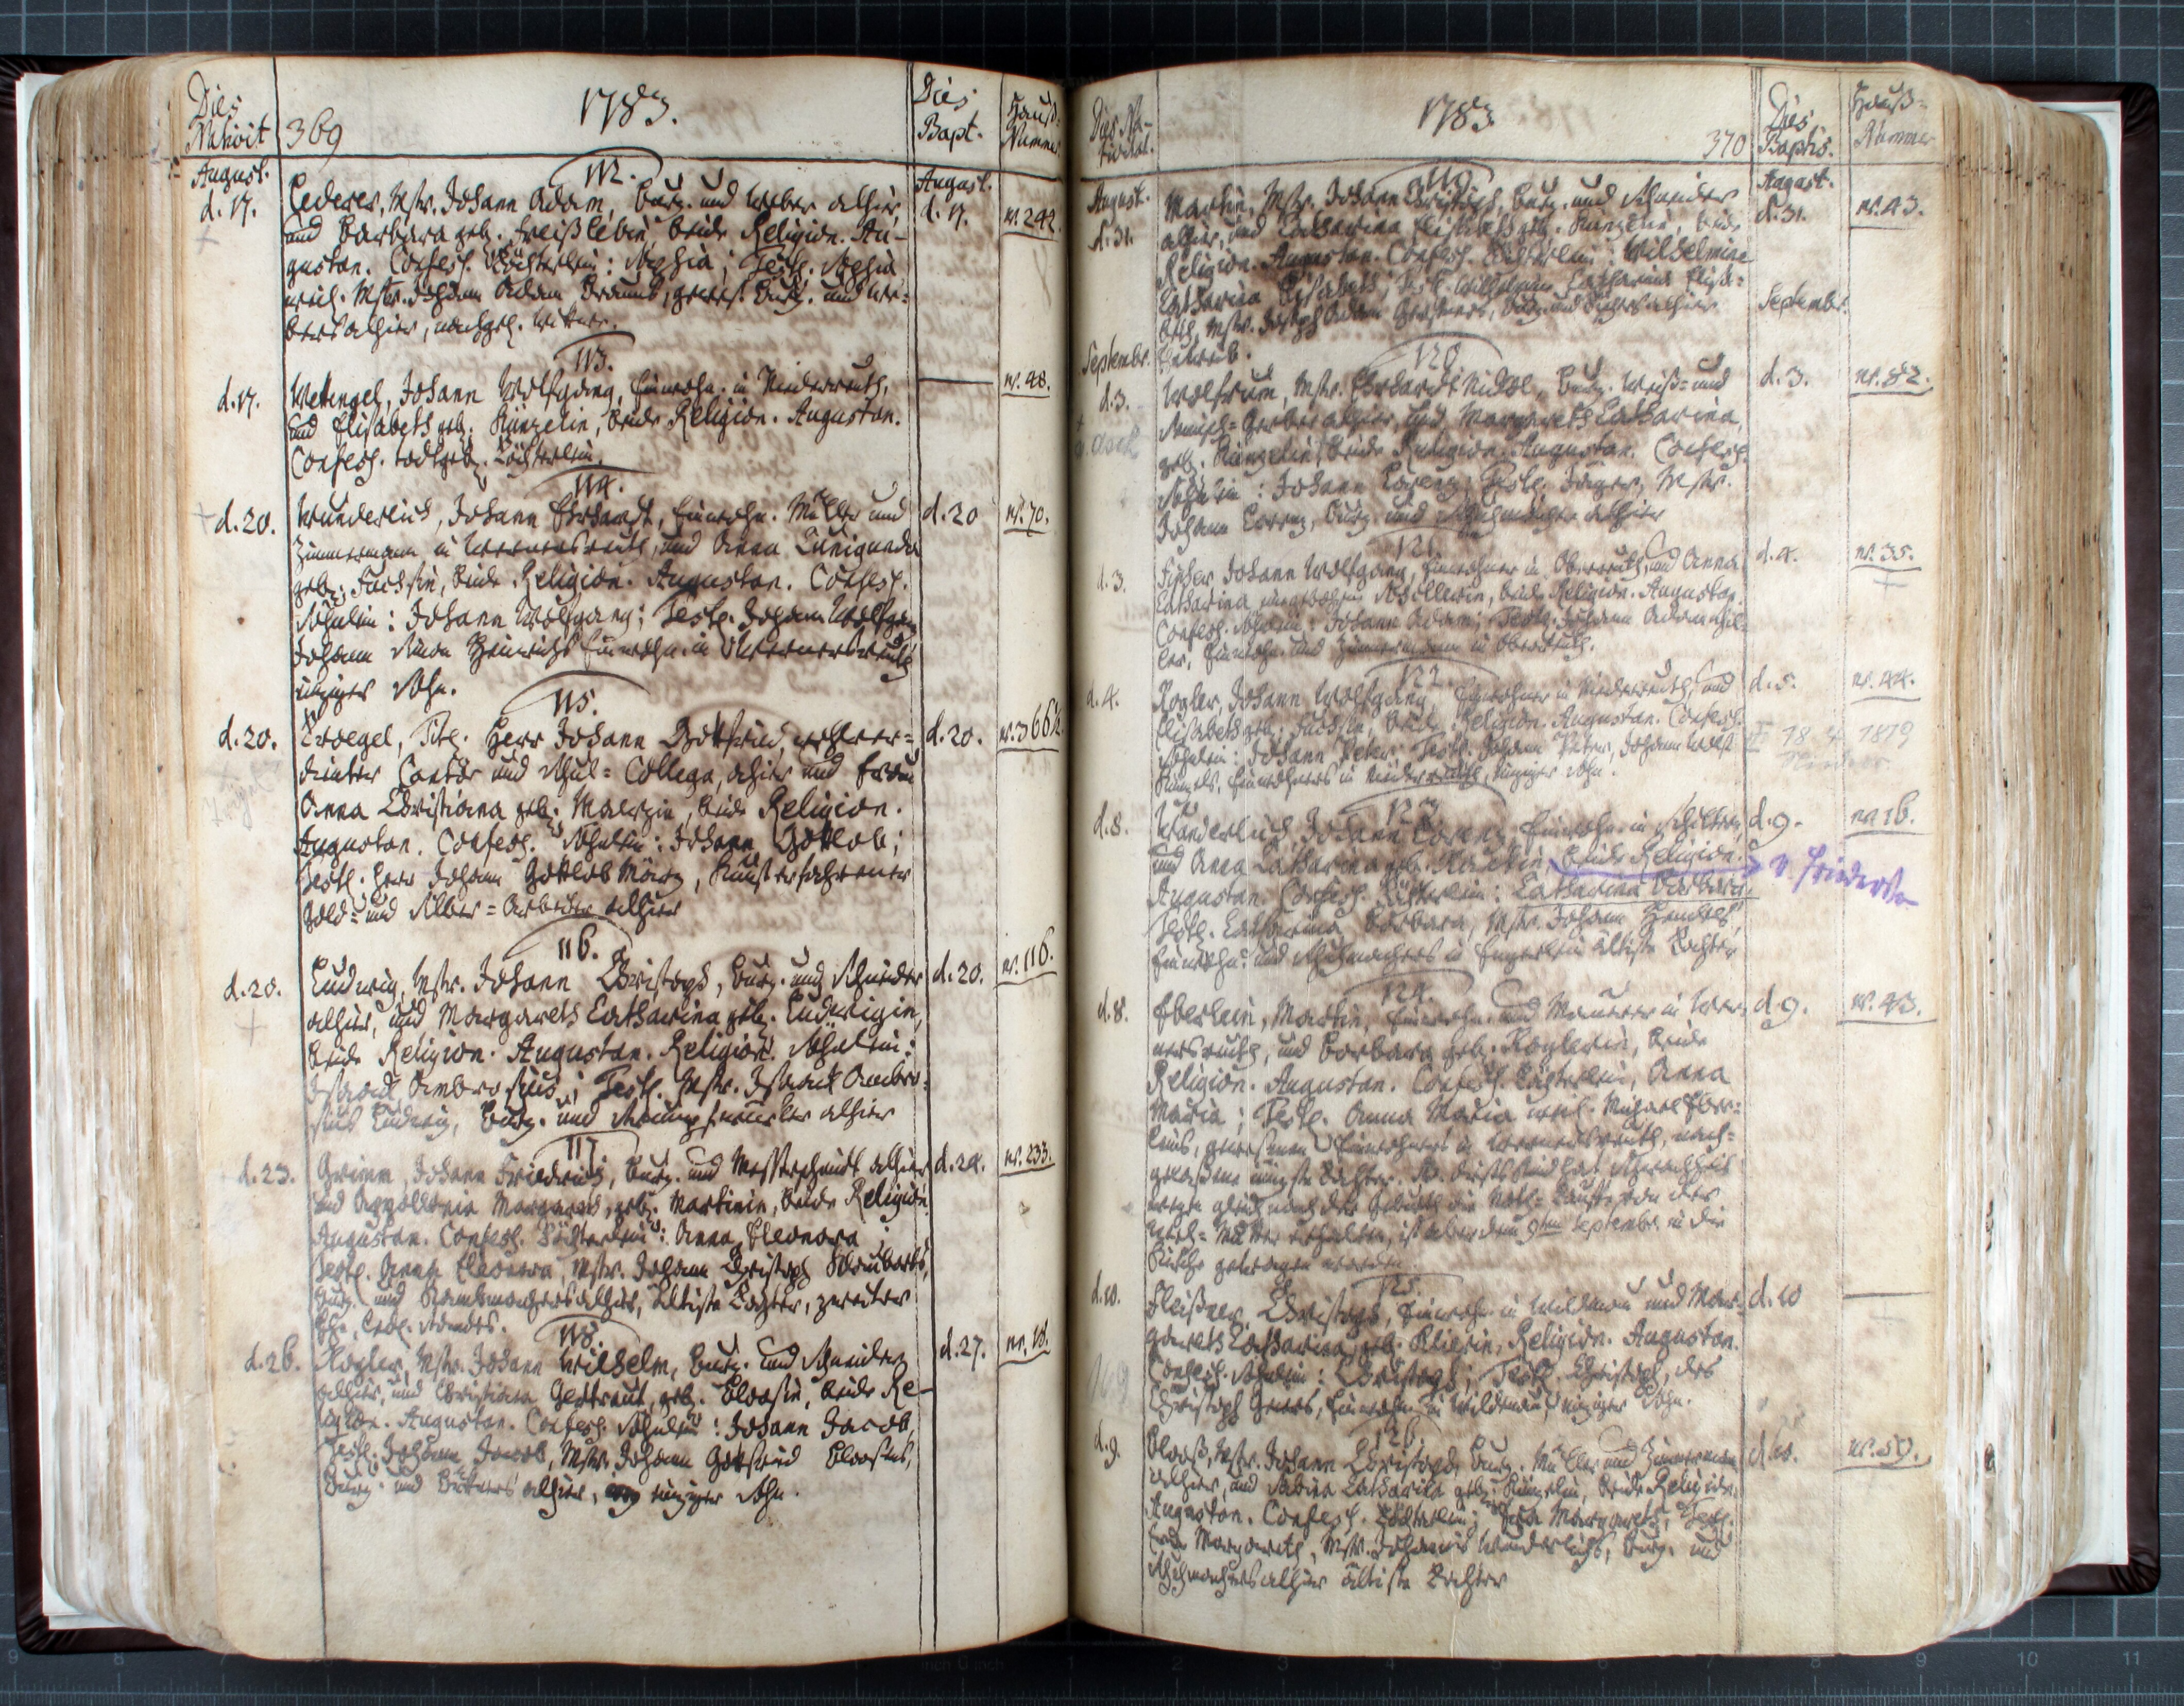 Dies
Nativit.
369
1783.
Dies
Bapt.
Hauß-
Nummer
August.
d. 17.
112.
Lederer, Mstr. Johann Adam, Burg. und Weber alhier,
und Barbara geb. beide Religion. Au-
gustan. Confess. Töchterlein: Sophia; Test. Sophia
weil. Mstr. Johann Adam Brauns, gewes. Burg. und We-
bers alhier, nachgel. Wittwe.
August.
d. 17.
nr. 242.
d. 17.
113.
Wettengel, Johann Wolfgang, Einwohn. in Niederreuth,
und Elisabeth geb. Künzelin, beide Religion. Augustan.
Confess. todtgeb. Töchterlein.
nr. 48.
d. 20.
114.
Wunderlich, Johann Ehrhardt, Einwohn. Müller und
Zimmermann in Wernersreuth, und Anna Cunigunda
geb. Fuchsin, beide Religion. Augustan. Confess.
Söhnlein: Johann Wolfgang; Test. Johann Wolfgang
Johann Simon Heinrichs Einwohn. in Wernersreuth
einziger Sohn.
d. 20
nr. 70.
d. 20.
115.
Troegel, Tit. Herr Johann Gottfried, wohlver-
dienter Cantor und Schul-Collega, alhier und Frau
Anna Christiana geb. beide Religion.
Augustan. Confess. Söhnlein: Johann Gottlob;
Test. Herr Johann Gottlob März, Kunsterfahrener
Gold- und Silber-Arbeiter alhier
d. 20.
nr. 366½
d. 20.
116.
Ludwig, Mstr. Johann Christoph, Burg. und Schneider
alhier, und Margareth Catharina geb. Ludwigin,
beide Religion. Augustan. Religion. Söhnlein:
Isaack Ambrosius; Test. Mstr. Isaack Ambro-
sius Ludwig, Burg. und alhier
d. 20.
nr. 116.
d. 23.
117.
Grimm, Johann Friedrich, Burg. und Messerschmidt alhier
und Appollonia Margareth, geb. Martinin, beide Religion.
Augustan. Confess. Töchterlein: Anna Eleonora;
Test. Anna Eleonora, Mstr. Johann Christoph
Burg. und Kammmachers alhier, ältiste Tochter, zweiter
Ehe, led. Standes.
d. 24.
nr. 233.
d. 26.
118.
Kogler, Mstr. Johann Wilhelm, Burg. und Schneider
alhier, und Christiana Gertraut, geb. Bloosin, beide Re-
ligion. Augustan. Confess. Söhnlein: Johann Jacob,
Test. Johann Jacob, Mstr. Johann Gottfried Bloosens,
Burg. und Büttners alhier, einziger Sohn.
d. 27.
nr. 18.
Dies Na-
tivitat.
1783.
370
Dies
Baptis.
Hauß-
Nummer
August.
d. 31.
119.
Martin, Mstr. Johann Christoph, Burg. und Schneider
alhier, und Catharina Elisabeth geb. Künzelin, beide
Religion. Augustan. Confess. Töchterlein: Wilhelmine
Catharina Elisabeth; Test. Wilhelmine Catharina Elisa-
beth, Mstr. Joseph Adam Burg. und alhier
Eheweib.
August.
d. 31.
nr. 43.
Septembr.
d. 3.
120.
Wolfrum, Mstr. Ehrhardt Nickel, Burg. Weiß- und
Sämisch-Gerber alhier, und Margareth Catharina,
geb. Künzelin, beide Religion. Augustan. Confess.
Söhnlein: Johann Lorenz; Test. Jäger, Mstr.
Johann Lorenz, Burg. und alhier
Septembr.
d. 3.
nr. 82.
d. 3.
121.
Fischer Johann Wolfgang, Einwohner in Oberreuth, und Anna
Catharina, beide Religion. Augustan.
Confess. Söhnlein: Johann Adam; Test. Johann Adam
Einwohn. und Zimmermann in Oberreuth.
d. 4.
nr. 35.
d. 4.
122.
Kogler, Johann Wolfgang, Einwohner in Niederreuth, und
Elisabeth geb. Fuchsin, beide Religion. Augustan. Confess.
Söhnlein: Johann Peter; Test. Johann Peter, Johann Wolf
Künzels, Einwohners in Niederreuth, einziger Sohn.
d. 5.
nr. 44.
1819
d. 8.
123.
Wunderlich, Johann Lorenz, Einwohn. in Schildern
und Anna Catharina geb. beide Religion.
Augustan. Confess. Töchterlein: Catharina Barbara.
Test. Catharina Barbara, Mstr. Johann
Einwohn. und Schuhmachers in ältiste Tochter
d. 9.
nr. 16.
d. 8.
124.
Eberlein, Martin, Einwohn. und Maurer in Wer-
nersreuth, und Barbara geb. Koglerin, beide
Religion. Augustan. Confess. Töchterlein, Anna
Maria; Test. Anna Maria weil. Michael Eber-
leins, gewesenen Einwohners in Wernersreuth, nach-
gelaßene jüngste Tochter. NB. dieses Kind hat Schwachheit
wegen gleich nach der Geburth die Noth-Tauffe von der
Weh-Mutter erhalten, ist aber den 9ten Septembr. in die
Kirche getragen worden.
d. 9.
nr. 43.
d. 10.
125.
Fleißner, Christoph, Einwohn. in Wildenau und Mar-
gareth Catharina, geb. Religion. Augustan.
Confess. Söhnlein: Christoph; Test. Christoph, des
Christoph Einwohn. in Wildenau, einziger Sohn.
d. 10
d. 9.
126.
Blooß, Mstr. Johann Christoph, Burg. Müller und Zimmermann
alhier, und Sabina Catharina geb. Künzelin, beide Religion.
Augustan. Confess. Töchterlein: Eva Margareth; Test.
Eva Margareth, Mstr. Johann Wunderlichs, Burg. und
Schuhmachers alhier ältiste Tochter
d. 10.
nr. 59.